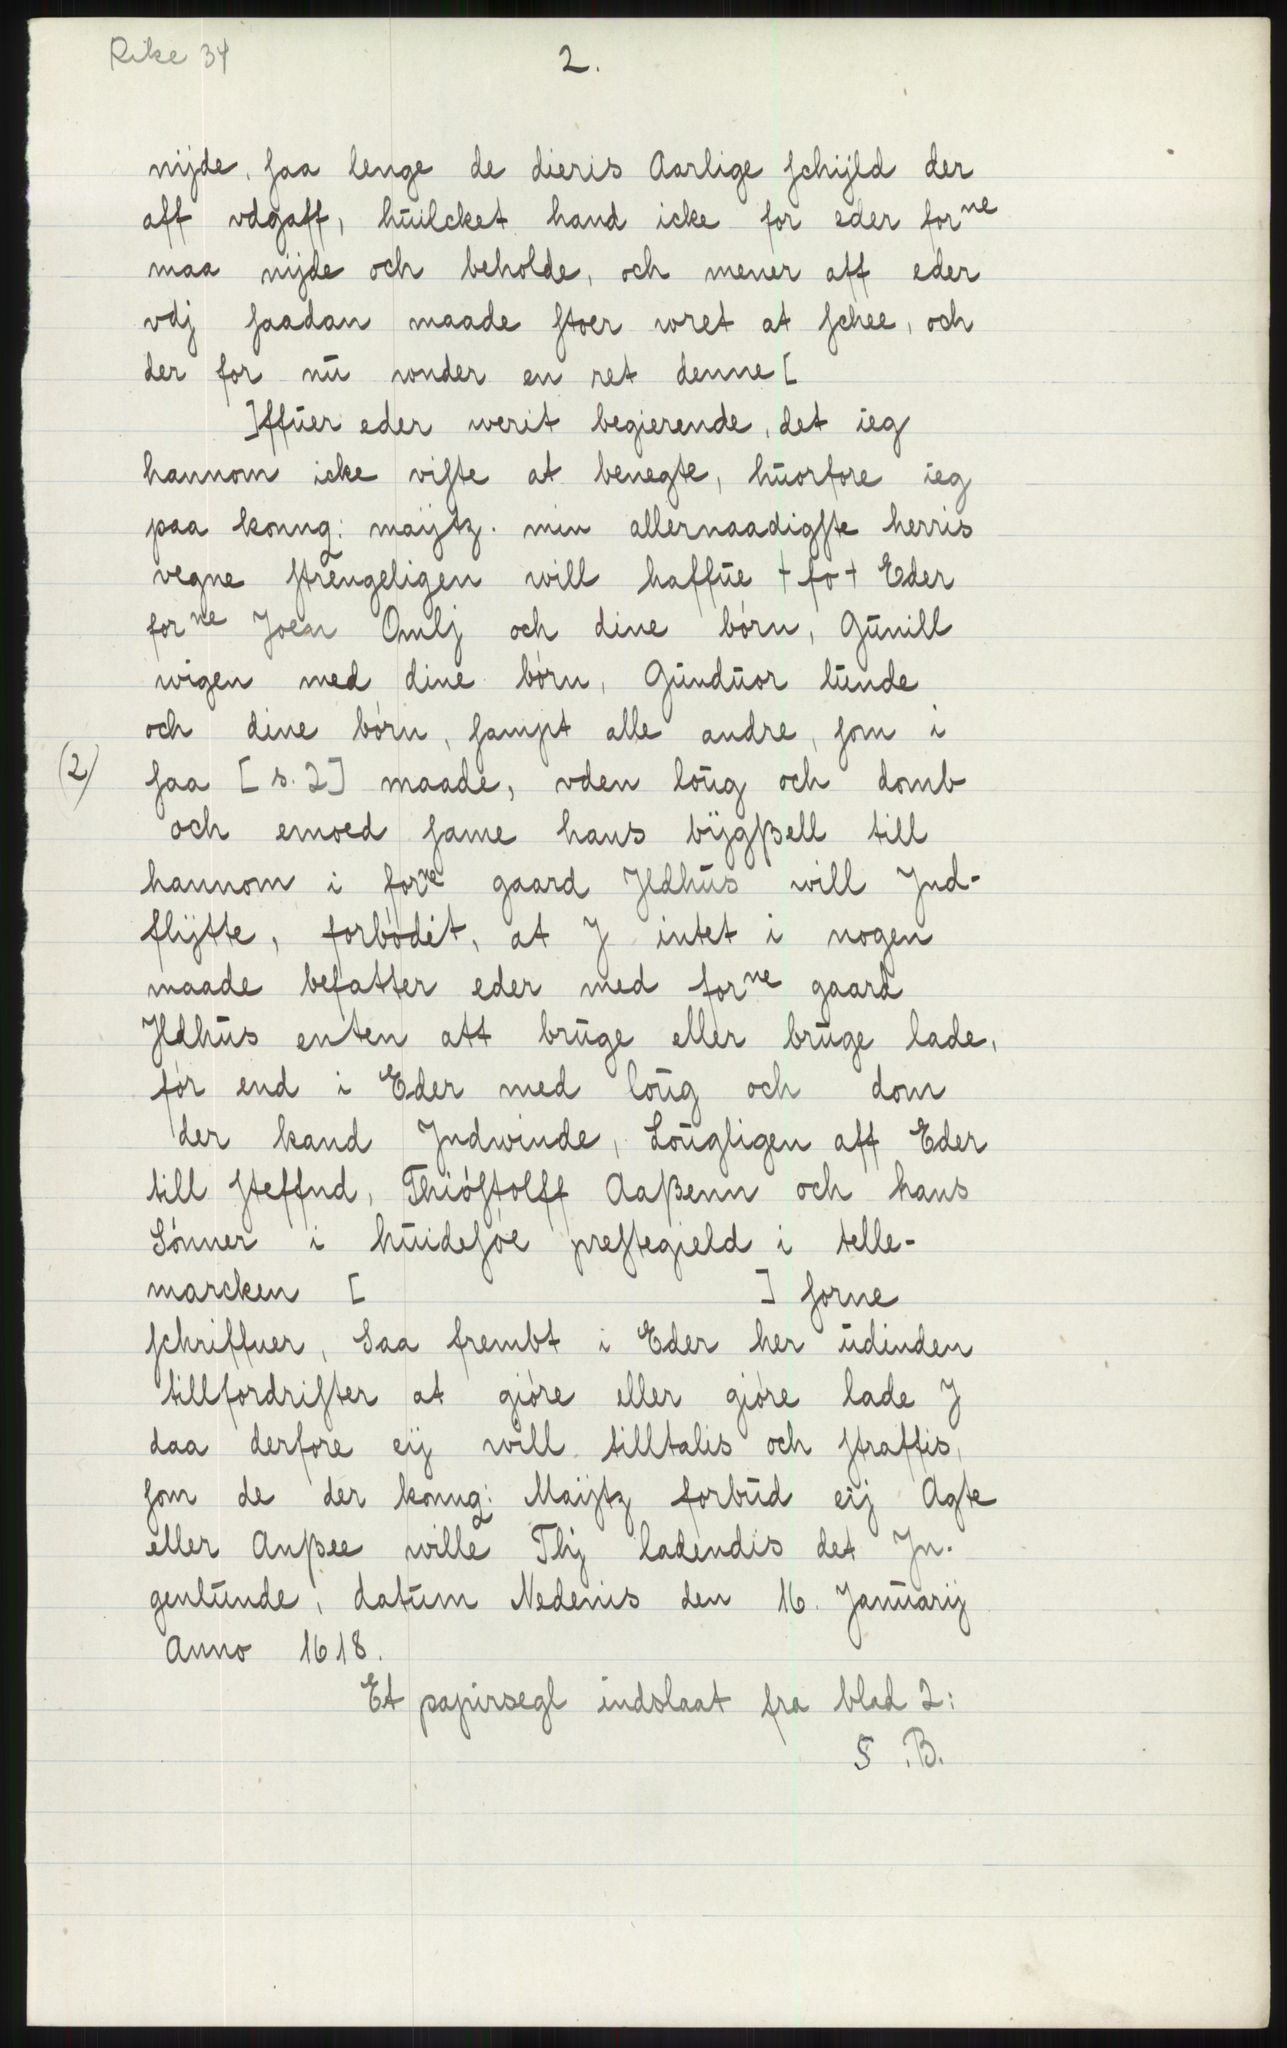 Rike 34
2.
nijde, saa lenge de dieris Aarlige schijld der
aff vdgaff, huilcket hand icke for eder forne
maa nijde och beholde, och mener aff eder
vdj saadan maade stoer wret at schee, och
der for nu wnder en ret denne [
]ffuer eder werit begierende, det ieg
hannom icke viste at benegte, huorfore ieg
paa konng: maijtz. min allernaadigste herris
vegne strengeligen will haffue + fo + Eder
forne Joen Omlj och dine børn, Gunill
wigen med dine børn, Gunduor lunde
och dine børn, sampt alle andre, som i
(2) saa [s. 2] maade, vden loug och domb
och emoed same hans bÿgßell till
hannom i forne gaard Jldhus will Jnd-
flÿtte, forbødet, at J intet i nogen
maade befatter eder med forne gaard
Jldhus enten att bruge eller bruge lade,
før end i Eder med loug och dom
der kand Jndwinde, Lougligen aff Eder
till steffnd, Thiøstolff Aaßenn och hans
Sønner i huidesøe prestegield i telle-
marcken [ ] forne
schriffuer, Saa frembt i Eder her udinden
tillfordrister at giøre eller giøre lade J
daa derfore eij will tilltalis och straffis,
som de der konng: Maijtz forbud eij Agte
eller Anßee wille Thj ladendis det Jn-
genlunde, datum Nedenis den 16. Januarij
Anno 1618.
Et papirsegl indslaat fra blad 2:
S .B.